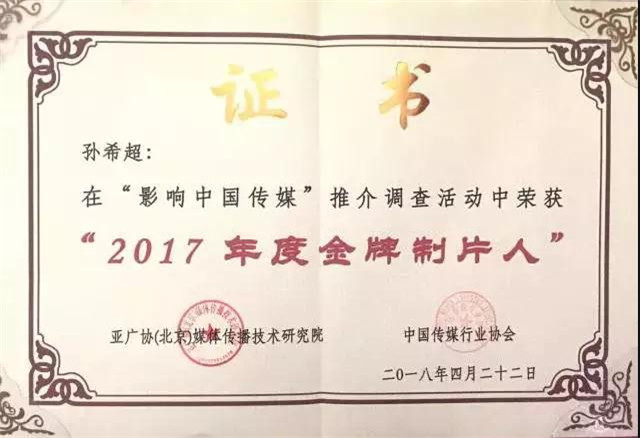 证书
孙希超：
在“影响中国传媒”推介调查活动中荣获
“2017 年度金牌制片人”
亚广协(北京)媒体传播技术研究院
中国传媒行业协会
二〇一八年四月二十二日